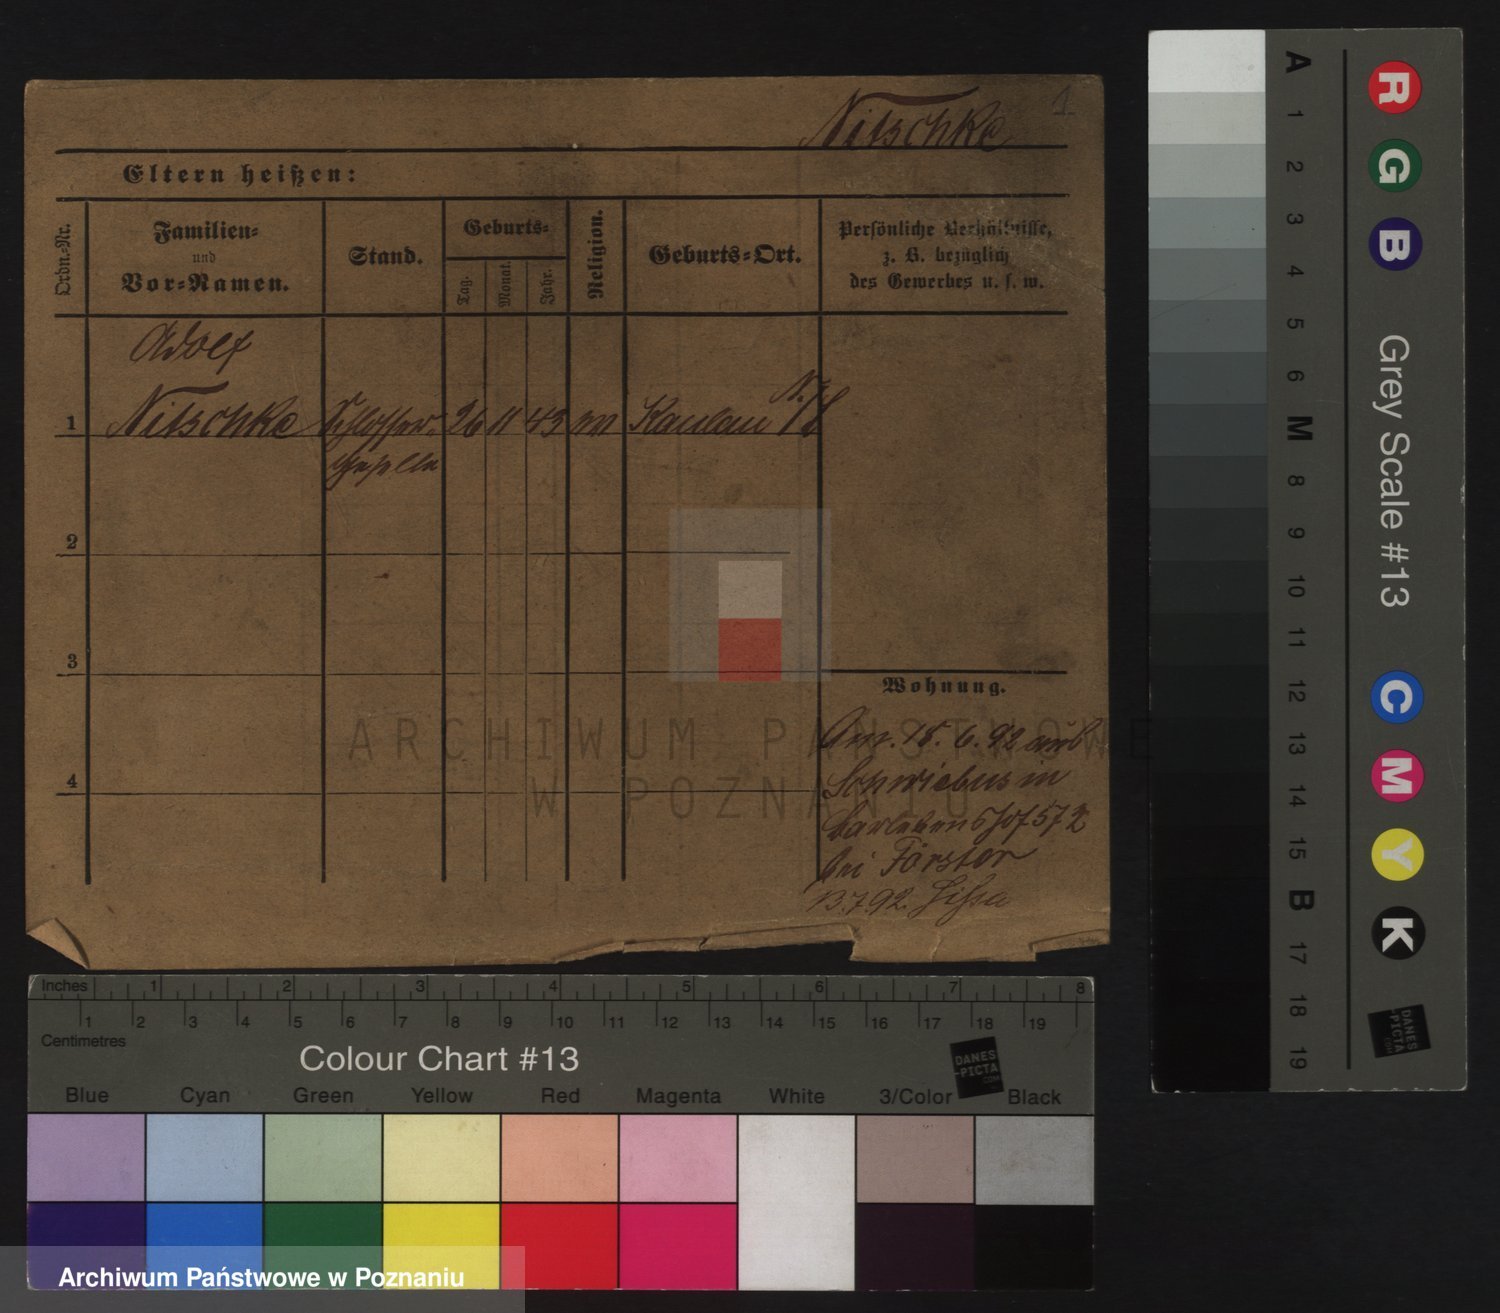 Nitschke
1
Eltern heißen:
Ordn.-Nr.
Familien-
und
Vor-Namen.
Stand.
Geburts-
Tag.
Monat.
Jahr.
Religion.
Geburts-Ort.
Persönliche Verhältnisse,
z. B. bezüglich
des Gewerbes u. s. w.
Adolf
1 Nitschke Schlosser- 26 11 43
geselle
2
3
4
Wohnung.
Am 18. 6. 92 aus
Schwiebus in
572
bei Förster
13.7.92. Lissa
ARCHIWUM PAŃSTWOWE
W POZNANIU
Inches 1 2 3 4 5 6 7 8
1 2 3 4 5 6 7 8 9 10 11 12 13 14 15 16 17 18 19
Centimetres
Colour Chart #13
DANES
-PICTA
.COM
Blue Cyan Green Yellow Red Magenta White 3/Color Black
Archiwum Państwowe w Poznaniu
A 1 2 3 4 5 6 M 8 9 10 11 12 13 14 15 B 17 18 19
R G B
Grey Scale #13
C M Y K
DANES
-PICTA
.COM